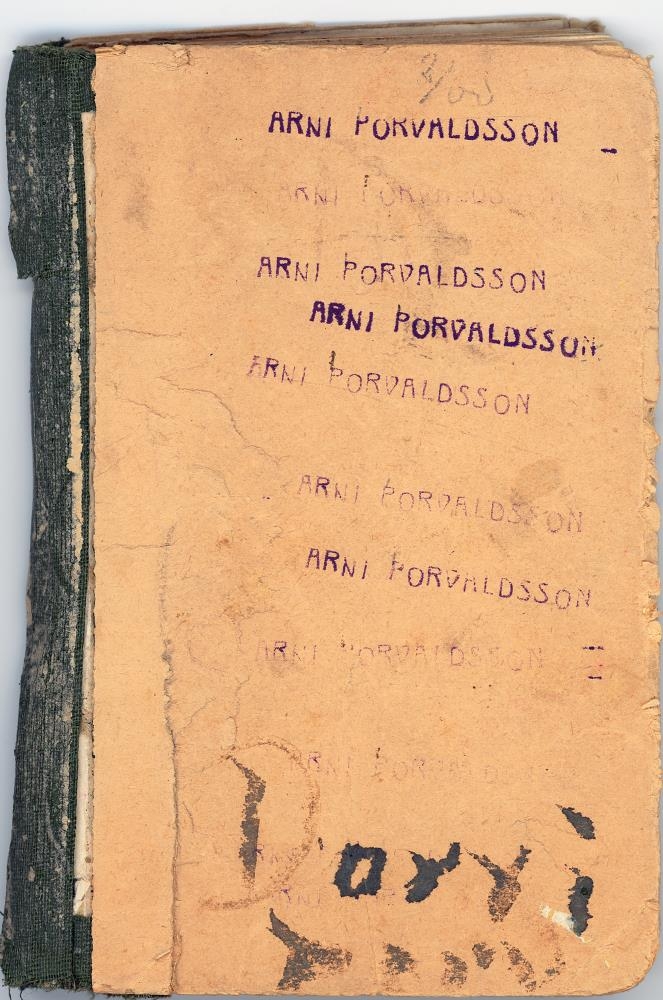 ARNI ÞORVALDSSON
ARNI ÞORVALDSSON
ARNI ÞORVALDSSON
ARNI ÞORVALDSSON
ARNI ÞORVALDSSON
ARNI ÞORVALDSSON
ARNI ÞORVALDSSON
ARNI ÞORVALDSSON
ARNI ÞORVALD
ARNI